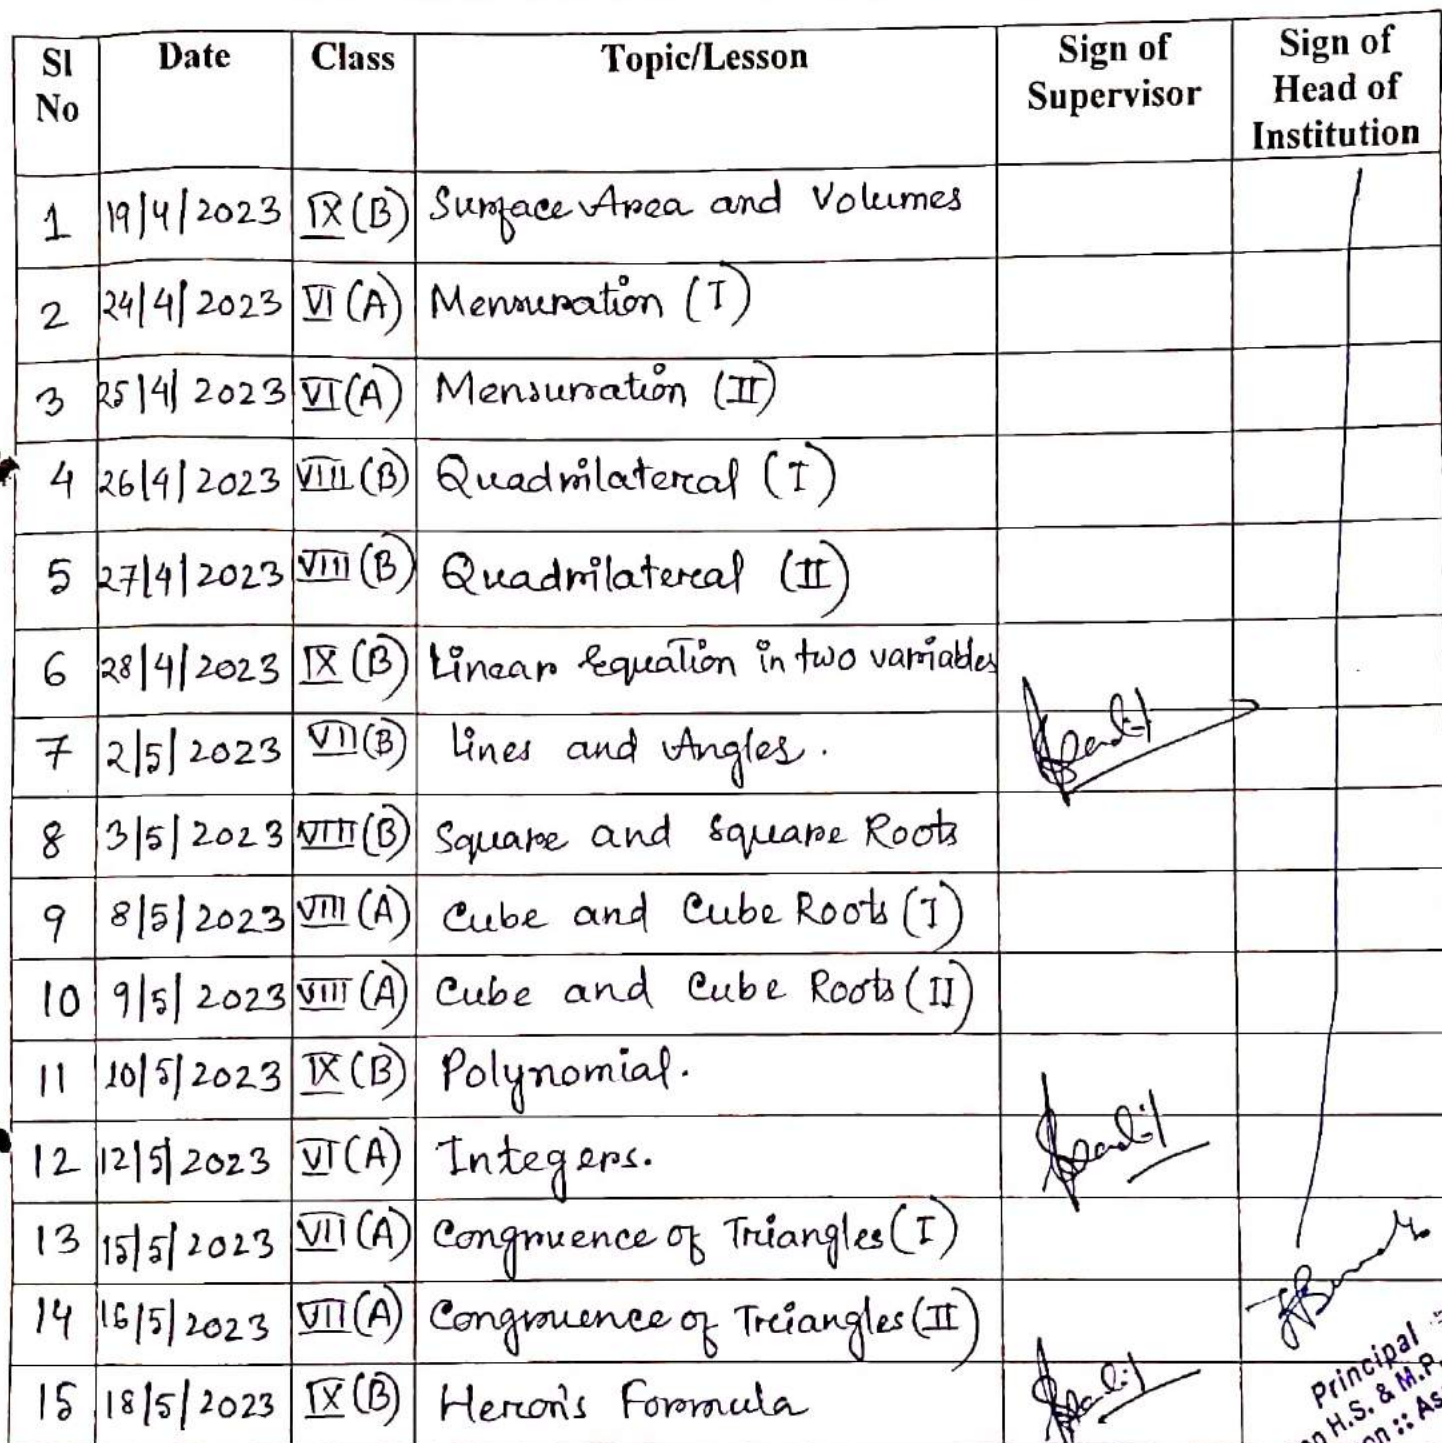 Sl No Date Class Topic/Lesson Sign of Supervisor Sign of Head of Institution
1 19/4/2023 IX (B) Surface Area and Volumes
2 24/4/2023 VI (A) Mensuration (I)
3 25/4/2023 VI (A) Mensuration (II)
4 26/4/2023 VIII (B) Quadrilateral (I)
5 27/4/2023 VIII (B) Quadrilateral (II)
6 28/4/2023 IX (B) Linear Equation in two variables
7 2/5/2023 VII (B) Lines and Angles.
8 3/5/2023 VIII (B) Square and Square Roots
9 8/5/2023 VIII (A) Cube and Cube Roots (I)
10 9/5/2023 VIII (A) Cube and Cube Roots (II)
11 10/5/2023 IX (B) Polynomial.
12 12/5/2023 VI (A) Integers.
13 15/5/2023 VII (A) Congruence of Triangles (I)
14 16/5/2023 VII (A) Congruence of Triangles (II)
15 18/5/2023 IX (B) Heron's Formula
Principal
H.S. & M.P.